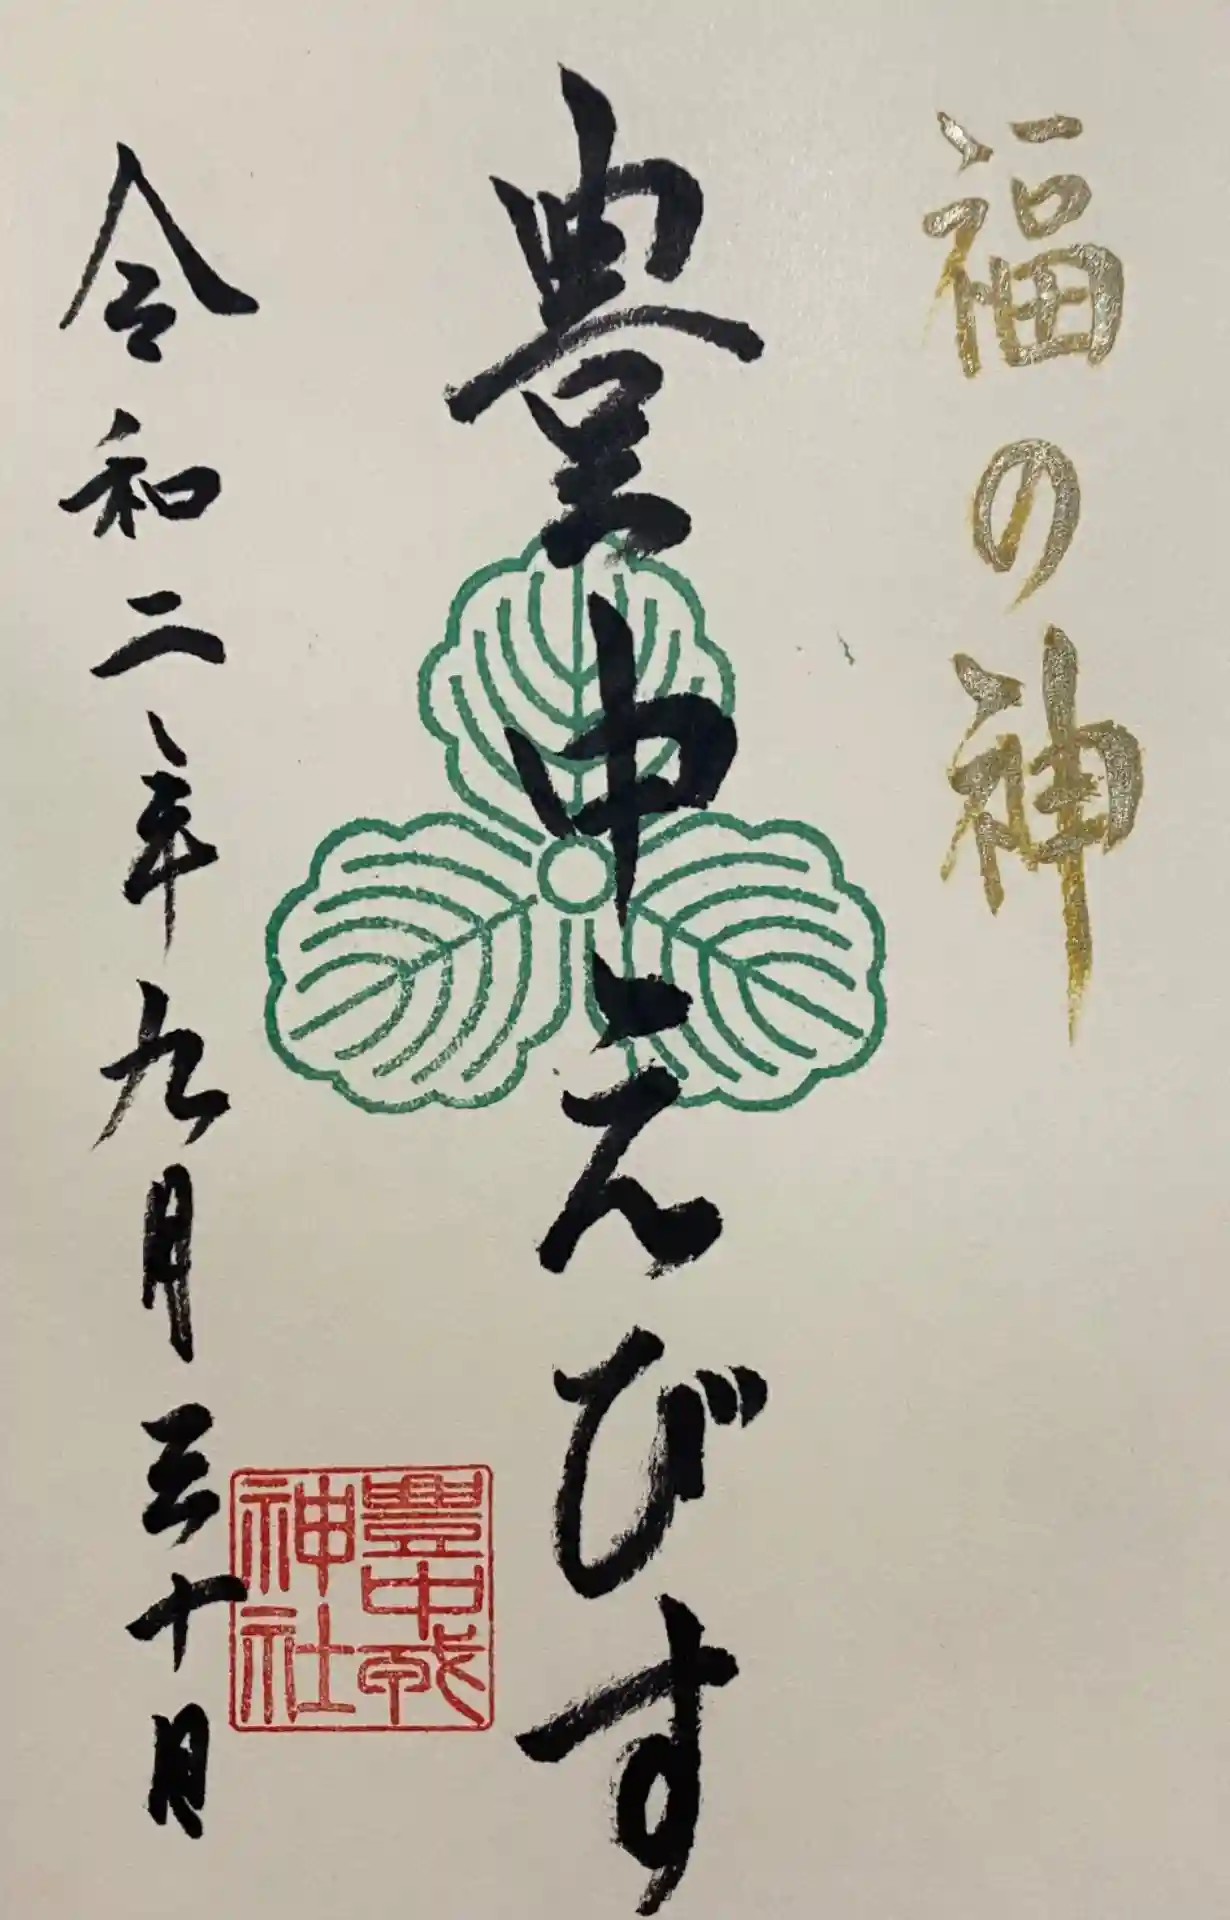 福の神
豊中えびす
豊中戎
神社
令和二年九月三十日